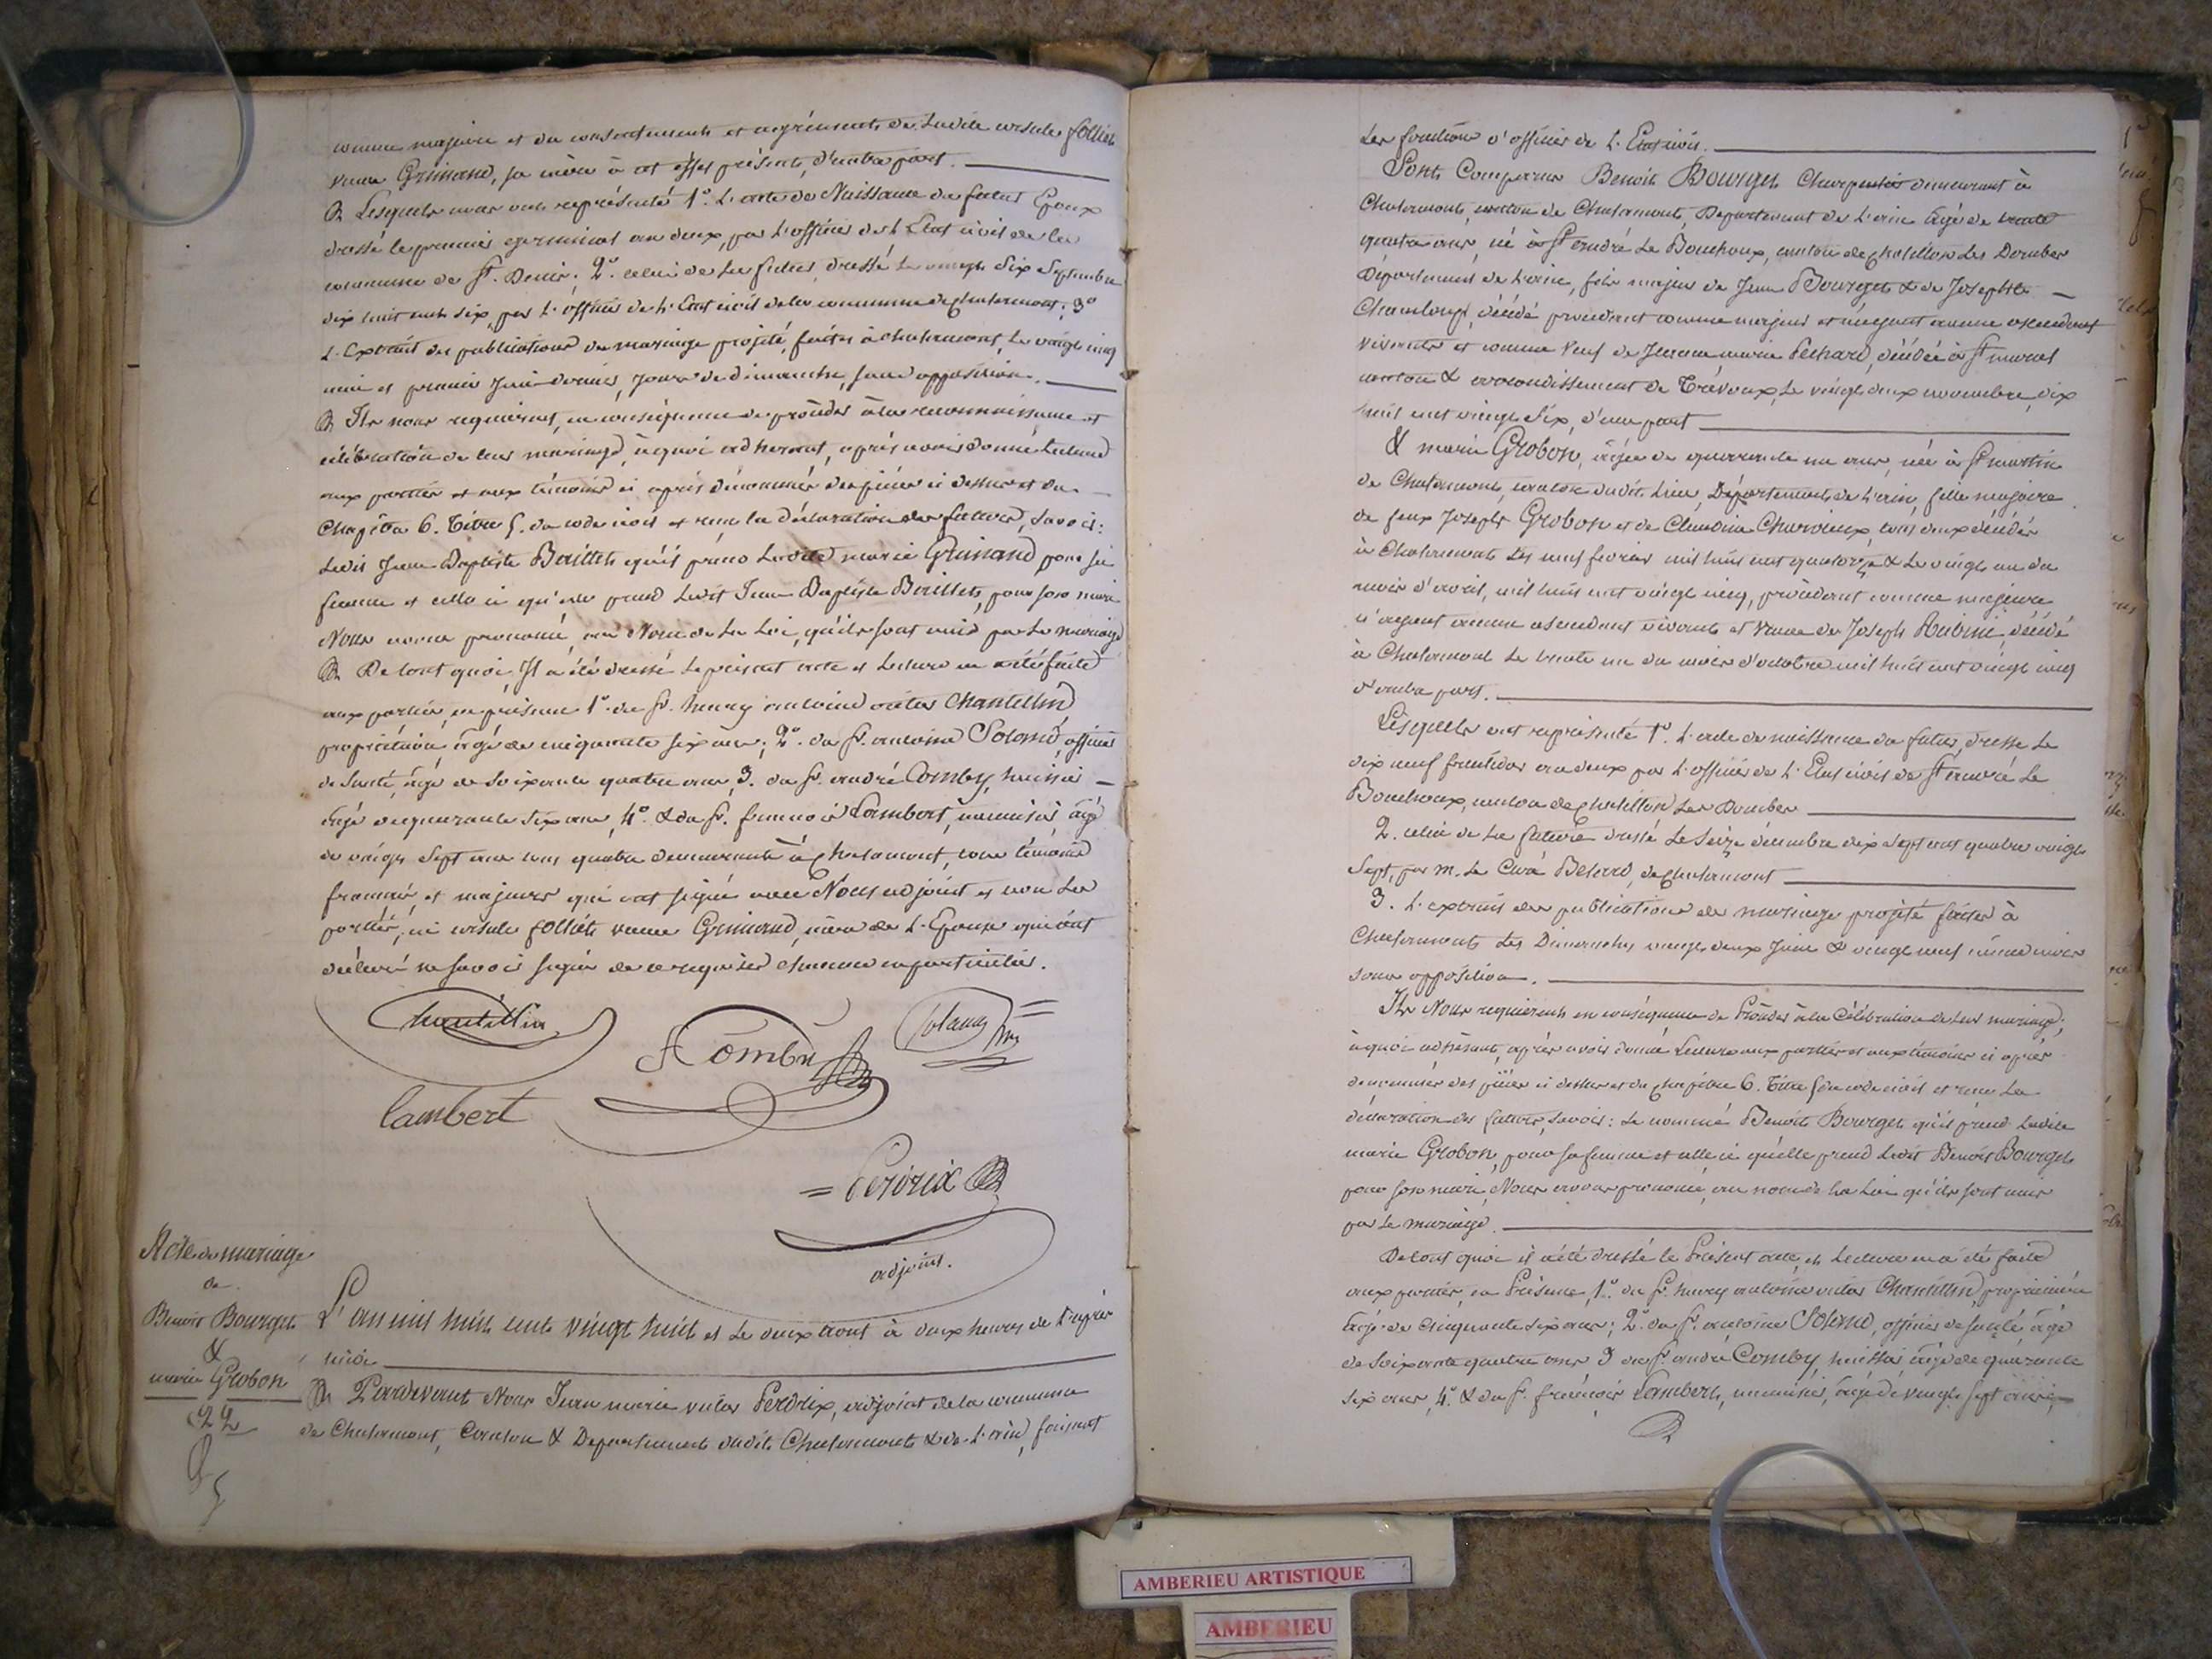 comme majeure et du consentement et agrément de Ladite ursule folliet
veuve Grimand, sa mère à cet effet présente, d'autre part.
Lesquels nous ont représenté 1°. L'acte de Naissance du futur Epoux
dressé le premier germinal an deux, par L'officier de L'Etat civil de la
commune de St. Denis; 2°. celui de La future, dressé Le vingt Six Septembre
dix huit cent six, par L'officier de L'Etat civil de la commune de Chalamont; 3°
L'Extrait des publications du mariage projeté, faites à chalamont, Le vingt cinq
mai et premier Juin dernier, jours de dimanche, sans opposition.
Ils nous requièrent, en conséquence de procéder à la reconnaissance et
célébration de leur mariage, à quoi adhérant, après avoir donné Lecture
aux parties et aux témoins ci après dénommés des pièces ci dessus et du
Chapitre 6. Titre 5. du code civil et reçu la déclaration des futurs, Savoir:
Ledit Jean Baptiste Baillet qu'il prend Ladite marie Grimand pour sa
femme et celle ci qu'elle prend Ledit Jean Baptiste Baillet, pour son mari
Nous avons prononcé, au Nom de La Loi, qu'ils sont unis par Le mariage
De tout quoi, Il a été dressé Le présent acte et Lecture en a été faite
aux parties, en présence 1°. du Sr. henry antoine victor Chantellin
propriétaire, âgé de cinquante six ans; 2°. du Sr. antoine Solomé, officier
de Santé, âgé de Soixante quatre ans, 3. du Sr. andré Comby, huissier
âgé de quarante Six ans, 4°. & du Sr. francois Lambert, menuisier, âgé
de vingt Sept ans tous quatre demeurants à Chalamont, tous témoins
français et majeurs qui ont signé avec Nous adjoint et non Les
parties, ni ursule folliet veuve Grimand, mère de L'Epouse qui ont
déclaré ne savoir signer de ce requises chacune en particulier.
Chantellin
A Comby
Solomé
Lambert
= Perdrix
adjoint.
Acte de mariage
de
Benoit Bourget
&
marie Grobon
22
L'an mil huit cent vingt huit et Le deux août à deux heures de L'après
midi
Pardevant Nous Jean marie victor Perdrix, adjoint de la commune
de Chalamont, Canton & Departement dudit Chalamont & de L'ain, faisant
Les fonctions d'officier de L'Etat civil.
Sont Comparus Benoit Bourget Charpentier demeurant à
Chalamont, canton de Chalamont, Departement de L'ain âgé de trente
quatre ans, né à St andré Le Bouchoux, canton de Chatillon Les Dombes
Département de L'ain, fils majeur de Jean Bourget & de Josephte
décédé procédant comme majeur et n'ayant aucune ascendant
vivants et comme veuf de Jeanne marie Pechard, décédée à St marcel
canton & arrondissement de Trévoux, Le vingt deux novembre, dix
huit cent vingt Six, d'une part
& marie Grobon, âgée de quarante un ans, née à St martin
de Chalamont, canton dudit Lieu, Département de L'ain, fille majeure
de feux Joseph Grobon et de Claudine Charvieux, tous deux décédés
à Chalamont Les neuf fevrier mil huit cent quatorze & Le vingt un du
mois d'avril, mil huit cent vingt cinq, procédant comme majeure
n'ayant aucune ascendant vivants et Veuve de Joseph Aubrin, décédé
à Chalamont Le trente un du mois d'octobre mil huit cent vingt cinq
d'autre part.
Lesquels ont représenté 1°. L'acte de naissance du futur, dressé Le
dix neuf an deux par L'officier de L'Etat civil de St andré Le
Bouchoux, canton de Chatillon Les Dombes
2. celui de La future dressé Le Seize décembre dix Sept cent quatre vingt
Sept, par M. Le Curé de Chalamont
3. L'extrait des publications de mariage projeté faites à
Chalamont Les Dimanches vingt deux Juin & vingt neuf même mois
sans opposition.
Ils Nous requierent en conséquence de Procéder à la Célébration de Leur mariage;
à quoi adhérant, après avoir donné Lecture aux parties et aux témoins ci après
dénommés des pièces ci dessus et du chapitre 6. Titre 5 du code civil et reçu La
déclaration des futurs, Savoir: Le nommé Benoit Bourget qu'il prend Ladite
marie Grobon, pour sa femme et celle ci qu'elle prend Ledit Benoit Bourget
pour son mari, Nous avons prononcé, au nom de La Loi qu'ils sont unis
par Le mariage.
De tout quoi il a été dressé le Présent acte, et Lecture en a été faite
aux parties, en Présence, 1°. du Sr. henry antoine victor Chantellin propriétaire
âgé de cinquante six ans; 2°. du Sr. antoine Solomé, officier de Santé, âgé
de Soixante quatre ans 3 du Sr. andré Comby, huissier âgé de quarante
Six ans, 4°. & du Sr. francois Lambert, menuisier, âgé de vingt Sept ans,
AMBERIEU ARTISTIQUE
AMBERIEU